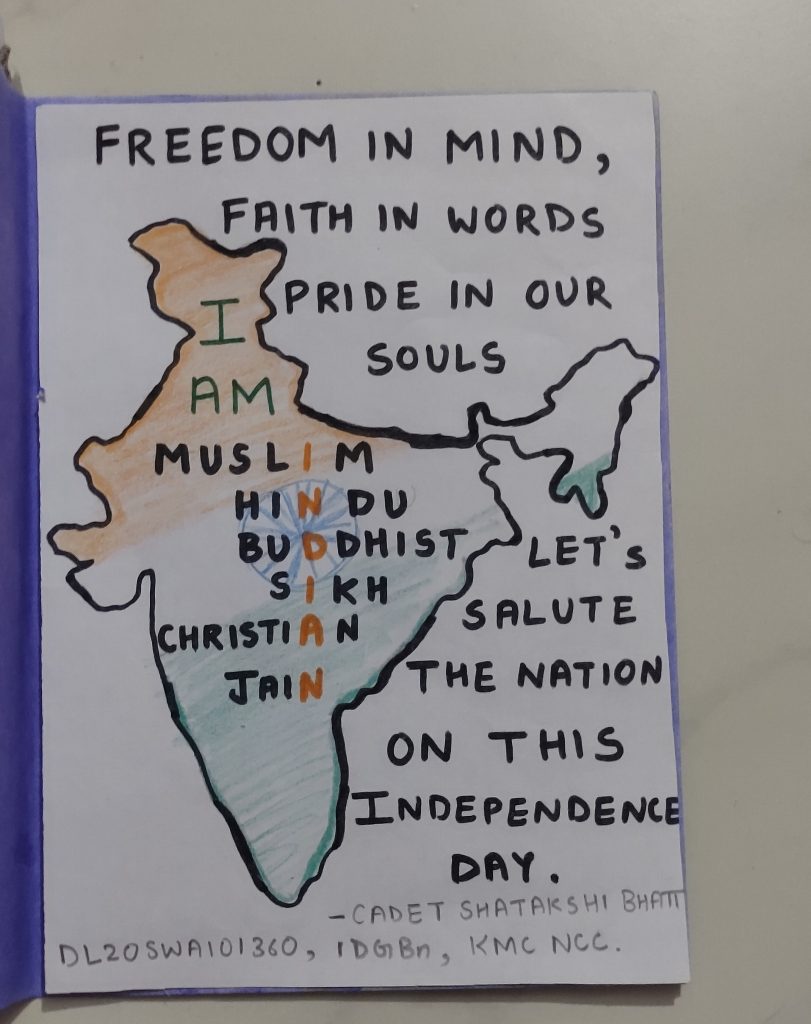 FREEDOM IN MIND,
FAITH IN WORDS
PRIDE IN OUR
SOULS
I
AM
MUSLIM
HINDU
BUDDHIST
SIKH
CHRISTIAN
JAIN
LET'S
SALUTE
THE NATION
ON THIS
INDEPENDENCE
DAY.
-CADET SHATAKSHI BHATT
DL20SWA101360, 1DGBn, KMC NCC.